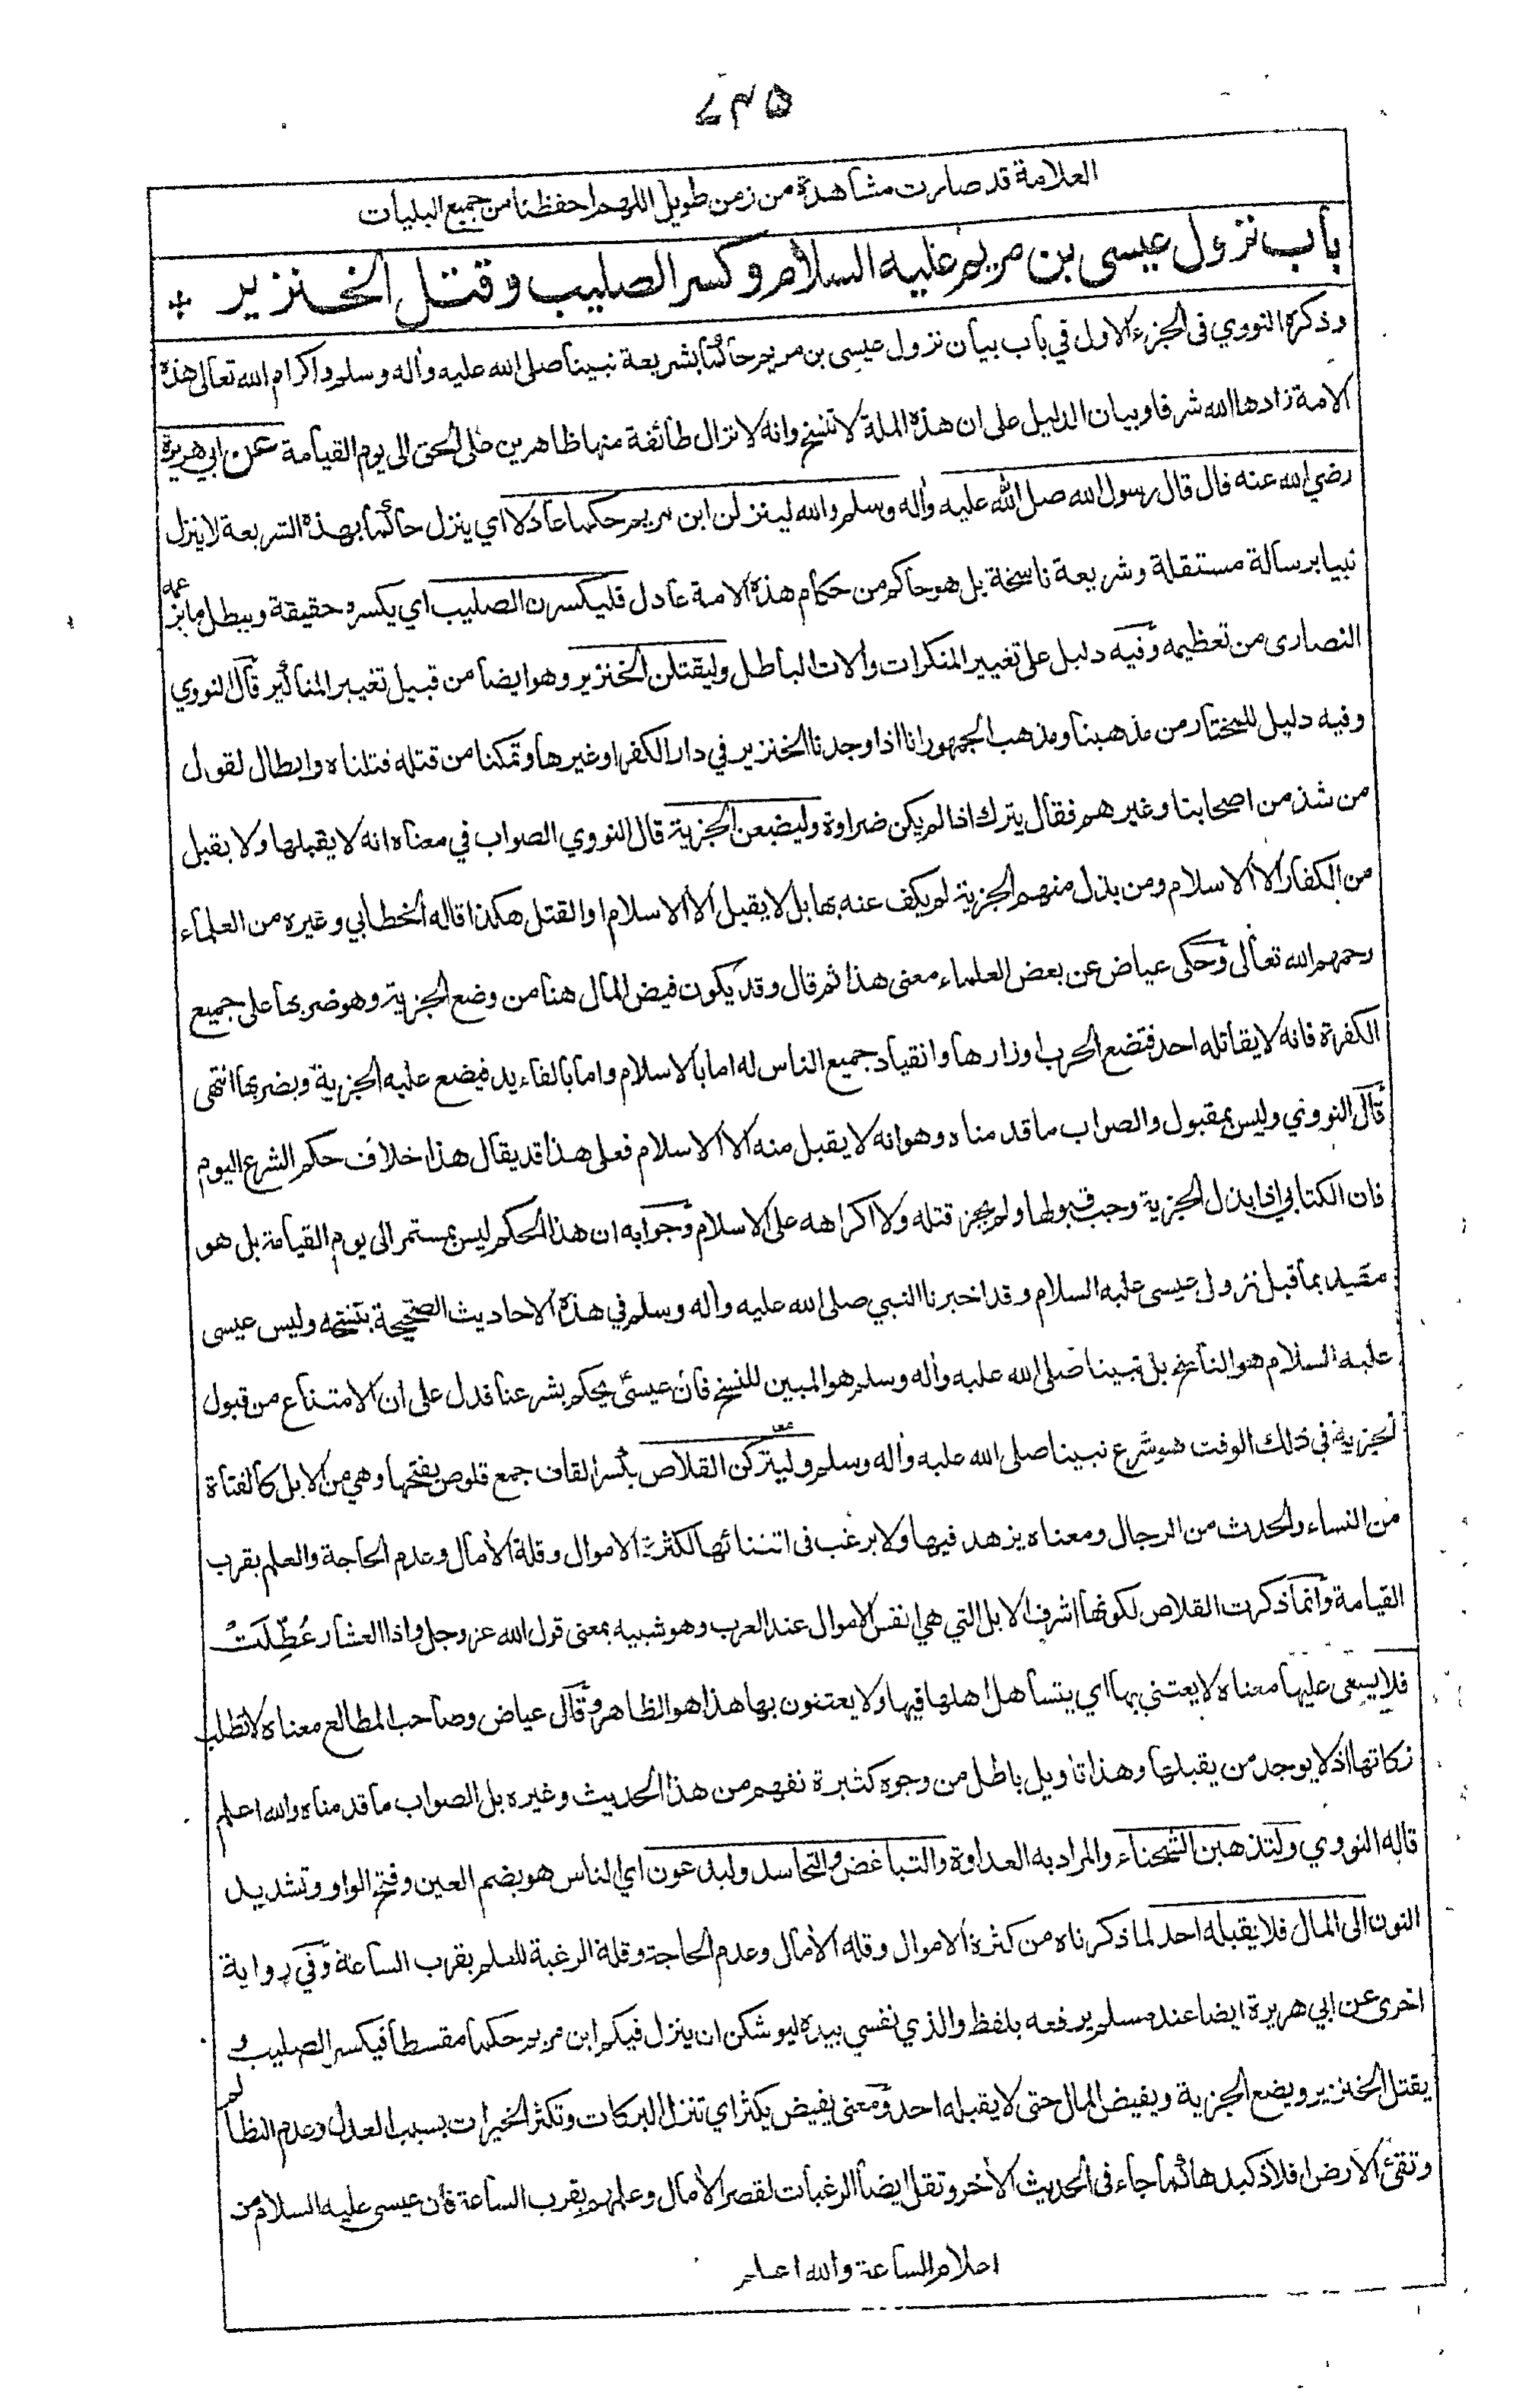 ۷۳۵
العلامة قد صارت مشاهدة من زمن طويل اللهم احفظنا من جميع البليات
باب نزول عيسى بن مريم عليه السلام وكسر الصليب وقتل الخنزير
وذكره النووي في الجزء الاول في باب بيان نزول عيسى بن مريم حاكما بشريعة نبينا صلى الله عليه وأله وسلم واكرام الله تعالى هذه
الامة زادها الله شرفا وبيان الدليل على ان هذه الملة لا تنسخ وانه لا تزال طائفة منها ظاهرين على الحق الى يوم القيامة عن ابي هريرة
رضي الله عنه قال قال رسول الله صلى الله عليه وأله وسلم والله لينزلن ابن مريم حكما عادلا اي ينزل حاكما بهذه الشريعة لا ينزل
نبيا برسالة مستقلة وشريعة ناسخة بل هو حاكم من حكام هذه الامة عادل فليكسرن الصليب اي يكسره حقيقة ويبطل ما يزعمه
النصارى من تعظيمه وفيه دليل على تغيير المنكرات وألات الباطل وليقتلن الخنزير وهو ايضا من قبيل تغيير المناكير قال النووي
وفيه دليل للمختار من مذهبنا ومذهب الجمهور انا اذا وجدنا الخنزير في دار الكفر او غيرها وتمكنا من قتله قتلناه وابطال لقول
من شذ من اصحابنا وغيرهم فقال يترك اذا لم يكن ضراوة وليضعن الجزية قال النووي الصواب في معناه انه لا يقبلها ولا يقبل
من الكفار الا الاسلام ومن بذل منهم الجزية لم يكف عنه بها بل لا يقبل الا الاسلام او القتل هكذا قاله الخطابي وغيره من العلماء
رحمهم الله تعالى وحكى عياض عن بعض العلماء معنى هذا ثم قال وقد يكون فيض المال هنا من وضع الجزية وهو ضربها على جميع
الكفرة فانه لا يقاتله احد فتضع الحرب اوزارها وانقياد جميع الناس له اما بالاسلام واما بالقاء يد فيضع عليه الجزية ويضربها انتهى
قال النووي وليس بمقبول والصواب ما قدمناه وهو انه لا يقبل منه الا الاسلام فعلى هذا قد يقال هذا خلاف حكم الشرع اليوم
فان الكتابي اذا بذل الجزية وجب قبولها ولم يجز قتله ولا اكراهه على الاسلام وجوابه ان هذا الحكم ليس بمستمر الى يوم القيامة بل هو
مقيد بما قبل نزول عيسى عليه السلام وقد اخبرنا النبي صلى الله عليه وأله وسلم في هذه الاحاديث الصحيحة بنسخه وليس عيسى
عليه السلام هو الناسخ بل نبينا صلى الله عليه وأله وسلم هو المبين للنسخ فان عيسى يحكم بشرعنا فدل على ان الامتناع من قبول
الجزية في ذلك الوقت هو شرع نبينا صلى الله عليه وأله وسلم وليتركن القلاص بكسر القاف جمع قلوص بفتحها وهي من الابل كالفتاة
من النساء والحدث من الرجال ومعناه يزهد فيها ولا يرغب في اقتنائها لكثرة الاموال وقلة الأمال وعدم الحاجة والعلم بقرب
القيامة وانما ذكرت القلاص لكونها اشرف الابل التي هي انفس الاموال عند العرب وهو شبيه بمعنى قول الله عز وجل واذا العشار عُطِّلَتْ
فلا يسعى عليها معناه لا يعتنى بها اي يتساهل اهلها فيها ولا يعتنون بها هذا هو الظاهر وقال عياض وصاحب المطالع معناه لا تطلب
زكاتها اذ لا يوجد من يقبلها وهذا تاويل باطل من وجوه كثيرة تفهم من هذا الحديث وغيره بل الصواب ما قدمناه والله اعلم
قاله النووي ولتذهبن الشحناء والمراد به العداوة والتباغض والتحاسد وليدعون اي الناس هو بضم العين وفتح الواو وتشديد
النون الى المال فلا يقبله احد لما ذكرناه من كثرة الاموال وقلة الأمال وعدم الحاجة وقلة الرغبة للعلم بقرب الساعة وفي رواية
اخرى عن ابي هريرة ايضا عند مسلم يرفعه بلفظ والذي نفسي بيده ليوشكن ان ينزل فيكم ابن مريم حكما مقسطا فيكسر الصليب و
يقتل الخنزير ويضع الجزية ويفيض المال حتى لا يقبله احد ومعنى يفيض يكثر اي تنزل البركات وتكثر الخيرات بسبب العدل وعدم التظالم
وتقئ الارض افلاذ كبدها كما جاء في الحديث الأخر وتقل ايضا الرغبات لقصر الأمال وعلمهم بقرب الساعة فان عيسى عليه السلام من
اعلام الساعة والله اعلم